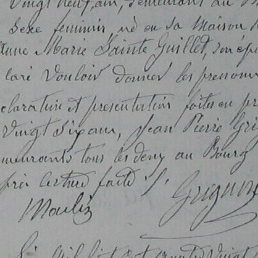 Vingt neuf ans, demeurant au
Sexe feminin, né en sa maison
Anne Marie Sainte Guillet, son ép
laré Vouloir donner les prenoms
eclaration et presentation faites en pré
Vingt Six ans, Jean Pierre Gri
emeurants tous les deux au Bourg
pris lecture faite
Moulin Grignon